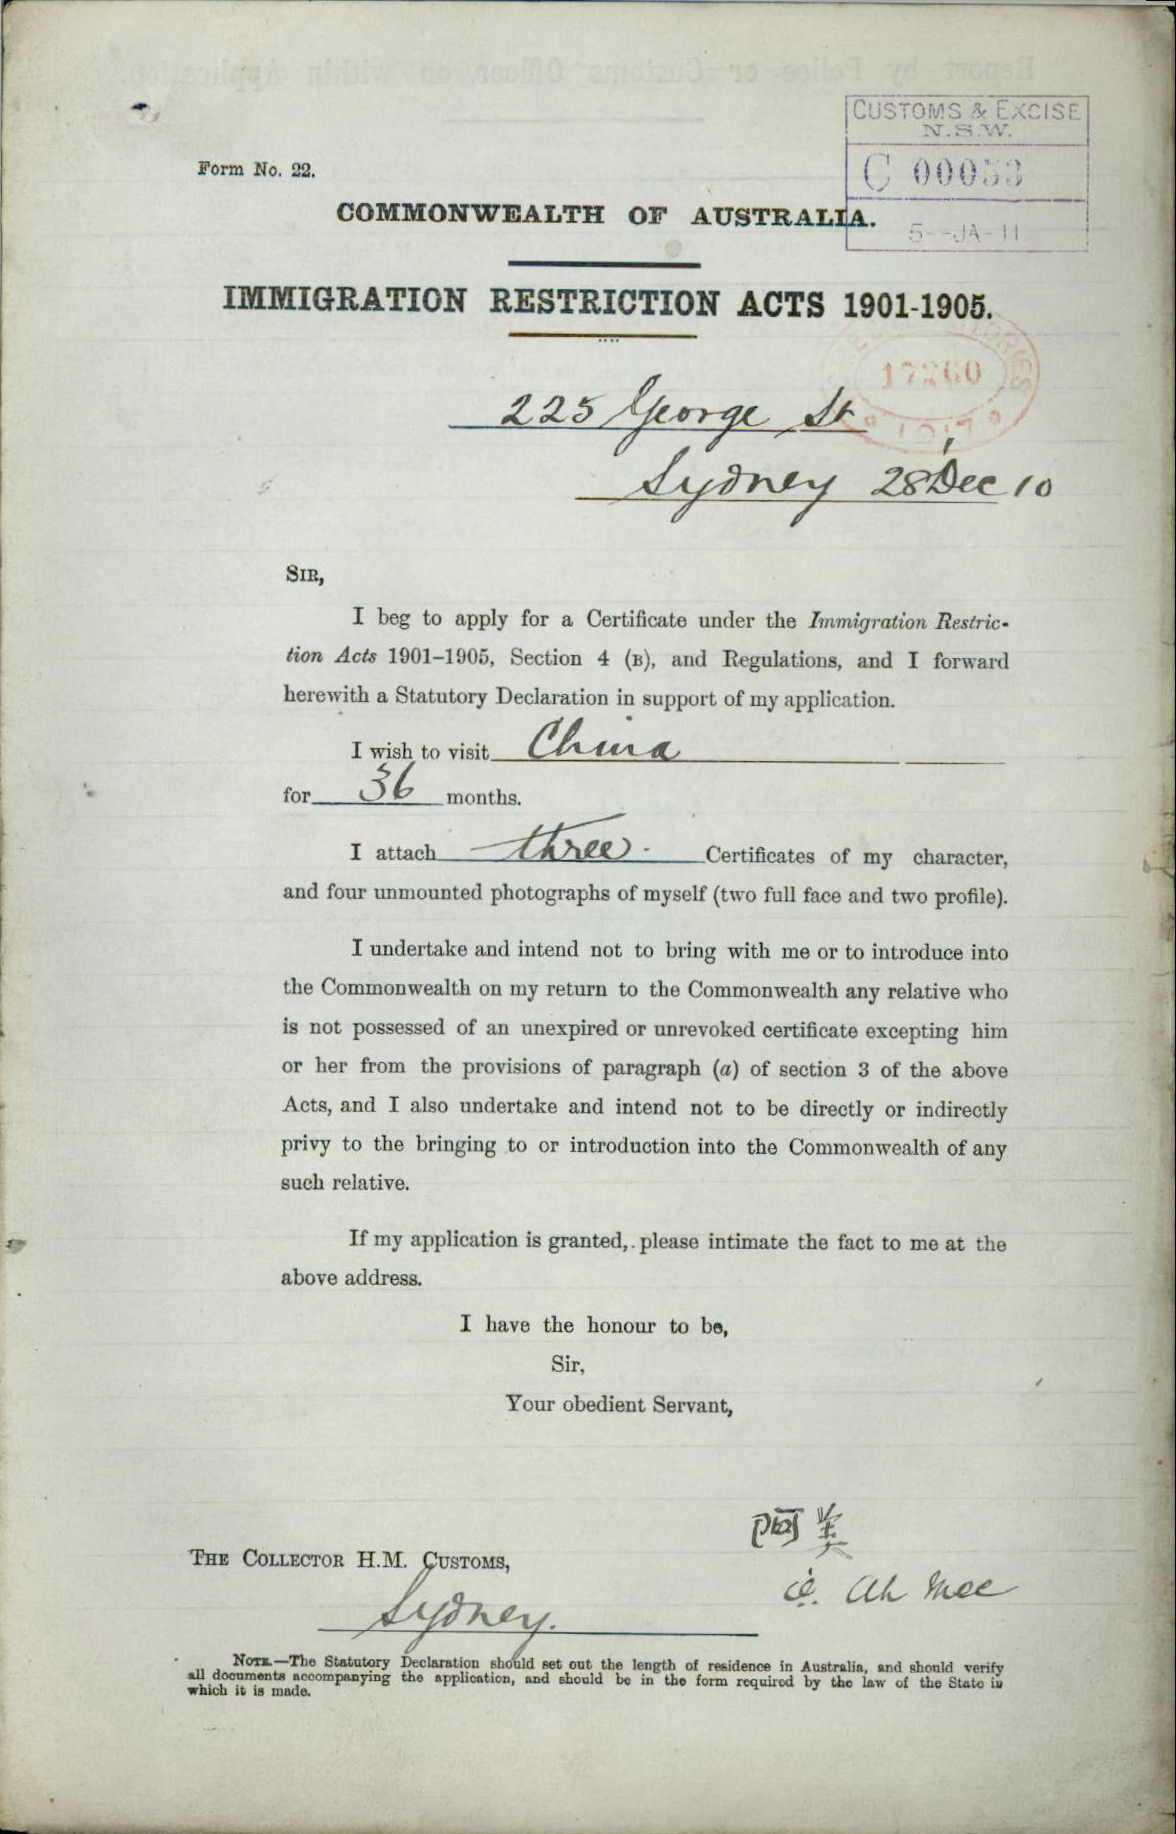 CUSTOMS & EXCISE
N.S.W.
C 00053
5--JA-11
Form No. 22.
COMMONWEALTH OF AUSTRALIA.
IMMIGRATION RESTRICTION ACTS 1901-1905.
17260
225 George St
Sydney 28 Dec 10
SIR,
I beg to apply for a Certificate under the Immigration Restric-
tion Acts 1901–1905, Section 4 (B), and Regulations, and I forward
herewith a Statutory Declaration in support of my application.
I wish to visit China
for 36 months.
I attach three Certificates of my character,
and four unmounted photographs of myself (two full face and two profile).
I undertake and intend not to bring with me or to introduce into
the Commonwealth on my return to the Commonwealth any relative who
is not possessed of an unexpired or unrevoked certificate excepting him
or her from the provisions of paragraph (a) of section 3 of the above
Acts, and I also undertake and intend not to be directly or indirectly
privy to the bringing to or introduction into the Commonwealth of any
such relative.
If my application is granted, please intimate the fact to me at the
above address.
I have the honour to be,
Sir,
Your obedient Servant,
阿美
THE COLLECTOR H.M. CUSTOMS,
Ah Mee
Sydney.
NOTE.—The Statutory Declaration should set out the length of residence in Australia, and should verify
all documents accompanying the application, and should be in the form required by the law of the State in
which it is made.